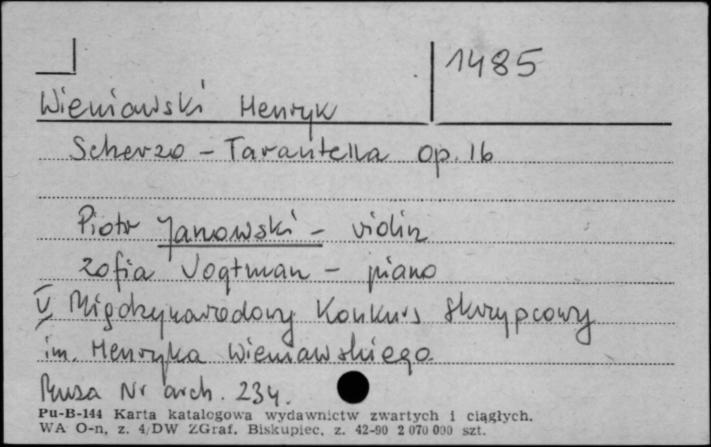 1485
Wieniawski Henryk
Scherzo - Tarantella op. 16
Piotr Janowski - violin
Zofia Vogtman - piano
V Międzynarodowy Konkurs Skrzypcowy
im. Henryka Wieniawskiego
Muza Nr arch. 234.
Pu-B-144 Karta katalogowa wydawnictw zwartych i ciągłych.
WA O-n, z. 4/DW ZGraf. Biskupiec, z. 42-90 2 070 000 szt.